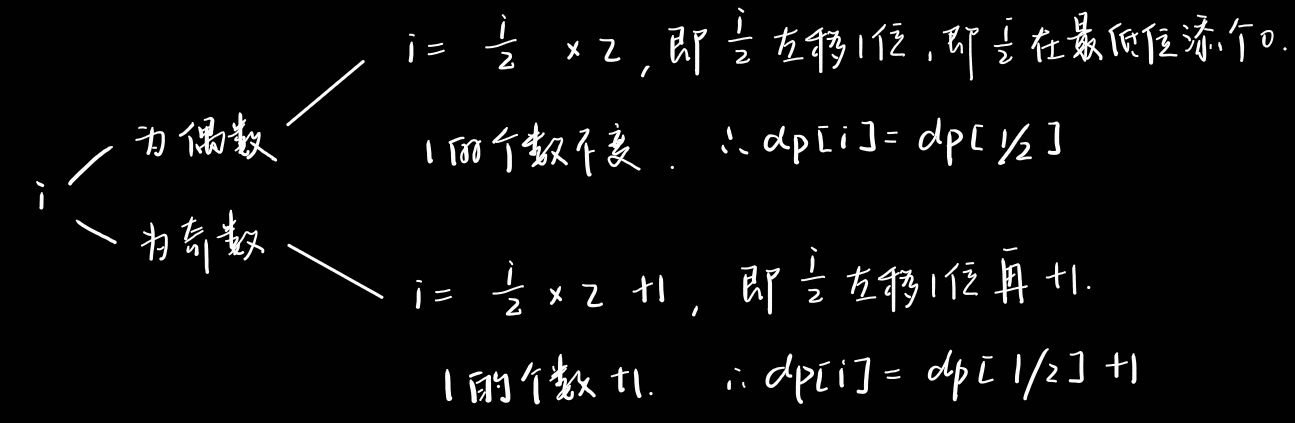 i = i/2 × 2，即 i/2 左移1位，即 i/2 在最低位添个0.
为偶数
1的个数不变. ∴ dp[i] = dp[1/2]
i
为奇数
i = i/2 × 2 +1，即 i/2 左移1位再+1.
1的个数+1. ∴ dp[i] = dp[1/2] +1